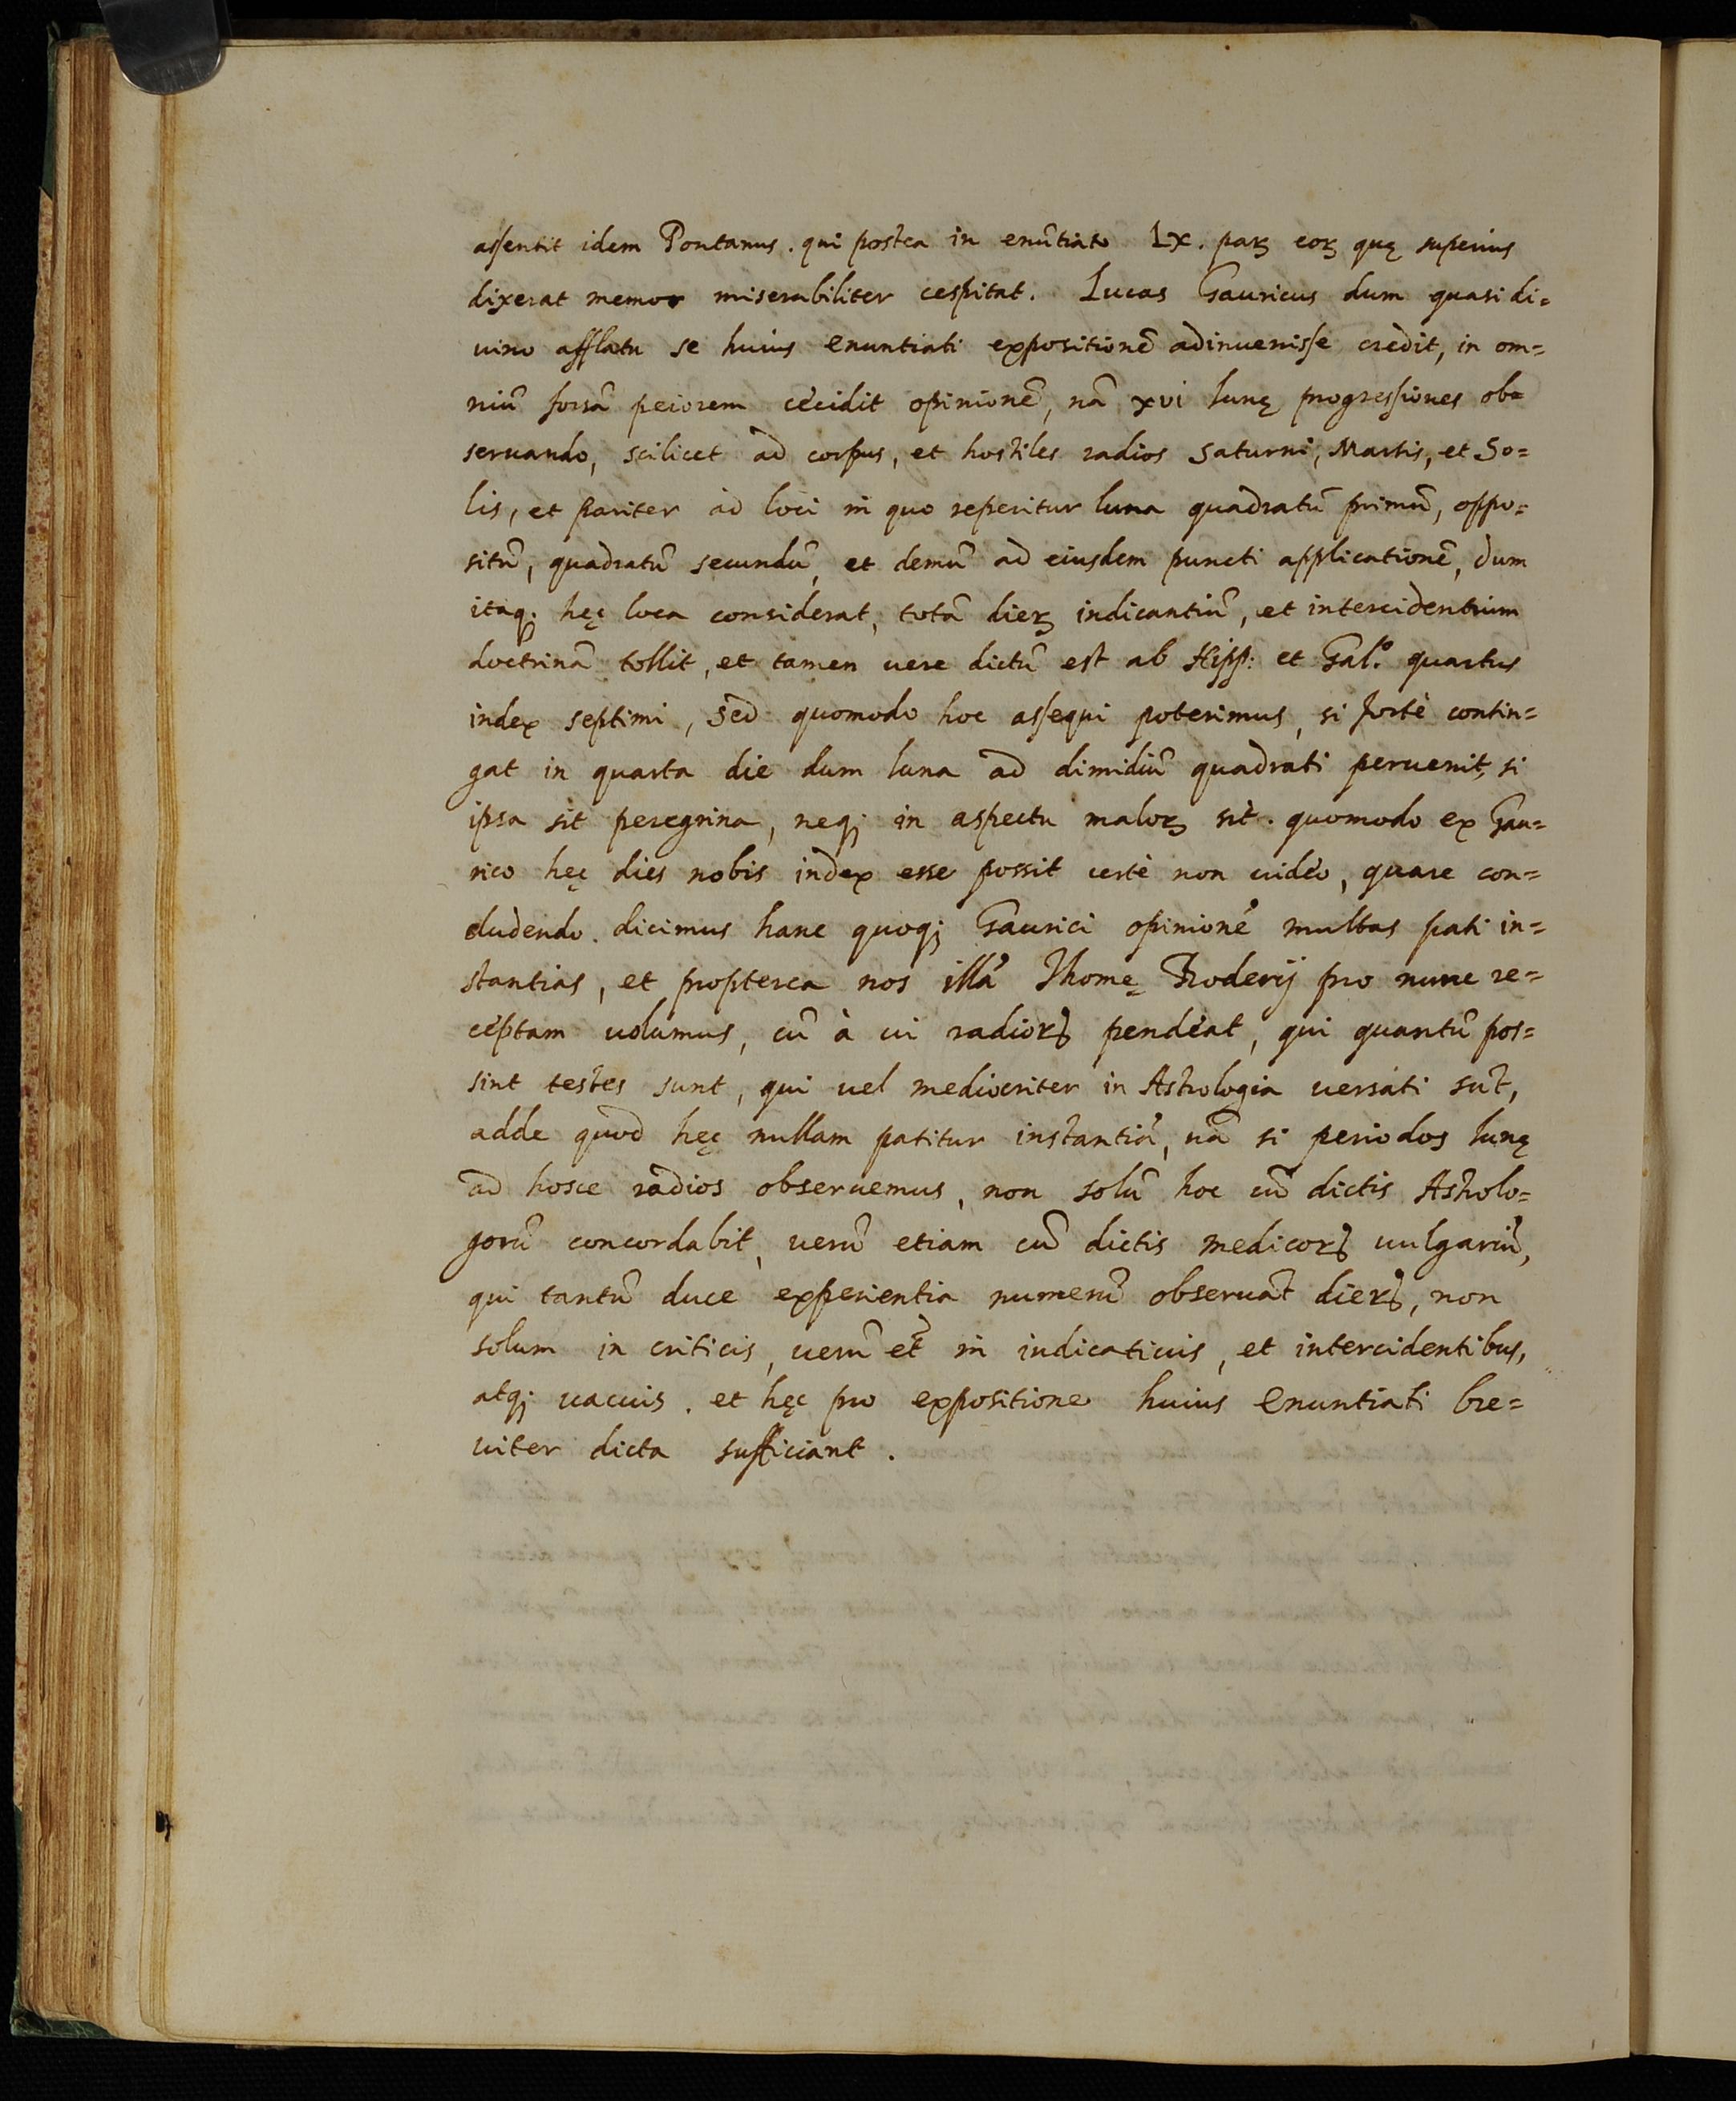 assentit idem Pontanus. qui postea in enũtiato LX. paꝝ eoꝝ quę superius
dixerat memor miserabiliter cespitat. Lucas Gauricus dum quasi di=
uino afflatu se huius enuntiati expositionẽ adinuenisse credit, in om=
niũ forsã peiorem cecidit opinionẽ, nã xvi lunę progressiones ob=
seruando, scilicet ad corpus, et hostiles radios Saturni, Martis, et So=
lis, et pariter ad loci in quo reperitur luna quadratũ primũ, oppo=
situ͂, quadratũ secundũ, et demũ ad eiusdem puncti applicationẽ, dum
itaq; hęc loca considerat, totã dieꝝ indicantiũ, et intercidentium
doctrinã tollit, et tamen uere dictũ est ab Hipp: et Gal.º quartus
index septimi, sed quomodo hoc assequi poterimus, si fortè contin=
gat in quarta die dum luna ad dimidiũ quadrati peruenit, si
ipsa sit peregrina, neq; in aspectu maloꝝ sit. quomodo ex Gau=
rico hęc dies nobis index esse possit certè non uideo, quare con=
cludendo dicimus hanc quoq; Gaurici opinionẽ multas pati in=
stantias, et propterea nos illã Thomę Boderij pro nunc re=
ceptam uolumus, cũ à ui radioꝝ pendeat, qui quantũ pos=
sint testes sunt, qui uel mediocriter in Astrologia uersati sũt,
adde quod hęc nullam patitur instantiã, nã si periodos lunę
ad hosce radios obseruemus, non solũ hoc cũ dictis Astrolo=
gorũ concordabit, uerũ etiam cũ dictis medicoꝝ uulgariũ,
qui tantũ duce experientia numerũ obseruãt dieꝝ, non
solum in criticis, uerũ et̃ in indicatiuis, et intercidentibus,
atq; uacuis. et hęc pro expositione huius enuntiati bre=
uiter dicta sufficiant.